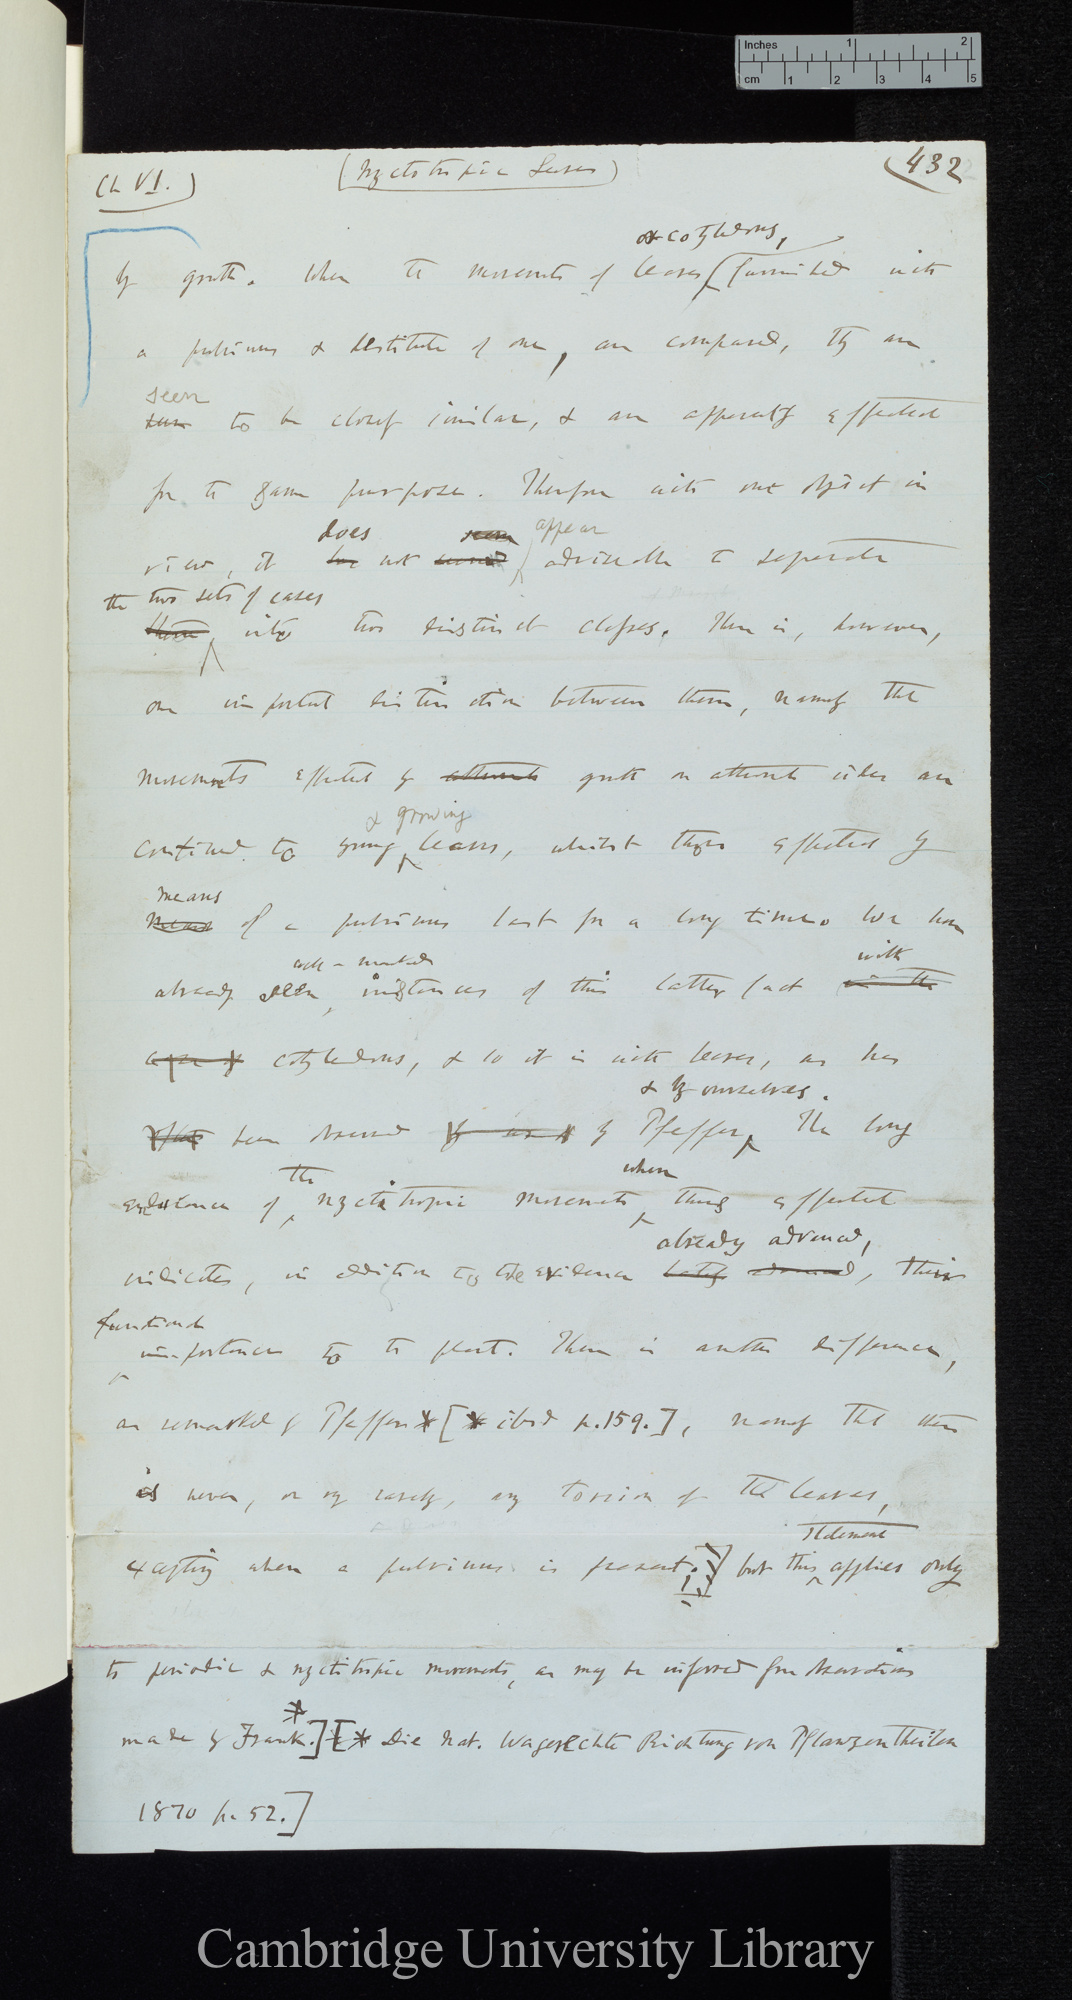 Inches 1 2
cm 1 2 3 4 5
Ch VI.) (Nyctitropic Leaves) (432
or cotyledons,
by growth. When the movements of leaves (furnished with
a pulvinus & destitute of one, are compared, they are
seen
seen to be closely similar, & are apparently effected
for the same purpose. Therefore with one object in
does seem appear
view, it has not seemed advisable to separate
the two sets of cases
them into two distinct classes. There is, however,
one important distinction between them, namely that
movements effected by alternate growth on alternate sides are
& growing
confined to young leaves, whilst those effected by
means
means of a pulvinus last for a long time. We have
well-marked with
already seen instances of this latter fact in the
case of cotyledons, & so it is with leaves, as has
& by ourselves.
been observed by us & by Pfeffer. The long
the when
endurance of nyctitropic movements, thus effected
already advanced,
indicates, in addition to the evidence lately advanced, their
functional
importance to the plant. There is another difference,
as remarked by Pfeffer * [* ibid p. 159.], namely that there
is never, or very rarely, any torsion of the leaves,
statement
excepting when a pulvinus is present.] but this applies only
to periodic & nyctitropic movements, as may be inferred from observations
*
made by Frank.] [* Die Nat. Wagerechte Richtung von Pflanzentheilen
1870 p. 52.]
Cambridge University Library